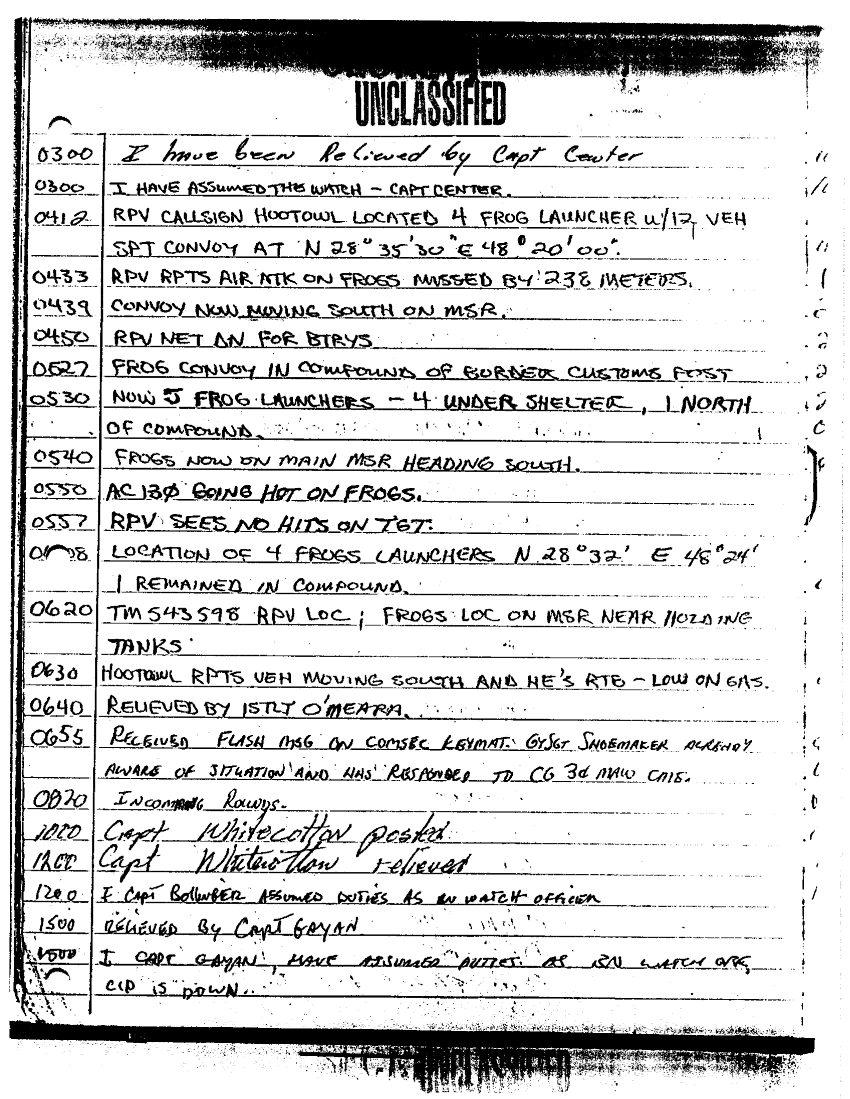 UNCLASSIFIED
0300 I have been Relieved by Capt Center
0300 I HAVE ASSUMED THE WATCH - CAPT CENTER.
0412 RPV CALLSIGN HOOTOWL LOCATED 4 FROG LAUNCHER W/12 VEH
SPT CONVOY AT N 28° 35' 30" E 48° 20' 00".
0433 RPV RPTS AIR ATK ON FROGS MISSED BY 238 METERS.
0439 CONVOY NOW MOVING SOUTH ON MSR.
0450 RPV NET DN FOR BTRYS
0527 FROG CONVOY IN COMPOUND OF BORDER CUSTOMS POST
0530 NOW 5 FROG LAUNCHERS - 4 UNDER SHELTER, 1 NORTH
OF COMPOUND.
0540 FROGS NOW ON MAIN MSR HEADING SOUTH.
0550 AC 130 GOING HOT ON FROGS.
0557 RPV SEES NO HITS ON TGT.
LOCATION OF 4 FROGS LAUNCHERS N 28° 32' E 48° 24'
1 REMAINED IN COMPOUND.
0620 TM 543598 RPV LOC; FROGS LOC ON MSR NEAR HOLDING
TANKS
0630 HOOTOWL RPTS VEH MOVING SOUTH AND HE'S RTB - LOW ON GAS.
0640 RELIEVED BY 1STLT O'MEARA.
0655 RECEIVED FLASH MSG ON COMSEC KEYMAT. GYSGT SHOEMAKER ALREADY
AWARE OF SITUATION AND HAS RESPONDED TO CG 3d MAW
0820 INCOMING Rounds.
1000 Capt Whitecotton posted
1200 Capt Whitecotton relieved
1200 I CAPT BOLLINGER ASSUMED DUTIES AS BN WATCH OFFICER
1500 RELIEVED By CAPT GAYAN
1500 I CAPT GAYAN, HAVE ASSUMED DUTIES AS BN WATCH OFF,
CID IS DOWN..